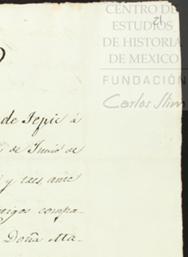 CENTRO DE
ESTUDIOS
DE HISTORIA
DE MEXICO
FUNDACIÓN
Carlos Slim
21
de Tepic á
de Junio de
y tres ante
tigos compa-
Doña Ma-